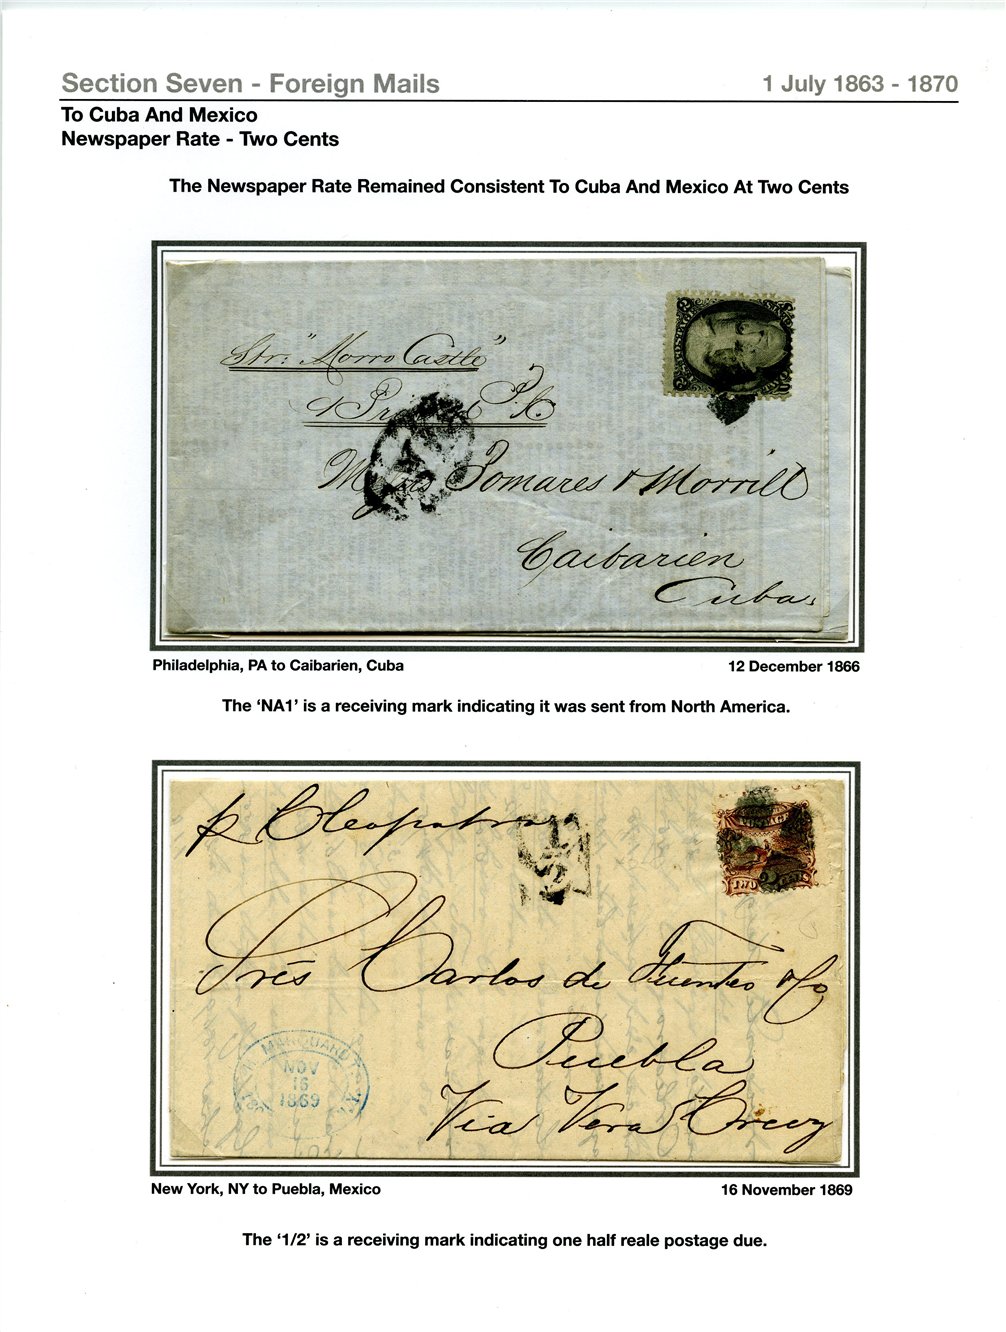 Section Seven - Foreign Mails
1 July 1863 - 1870
To Cuba And Mexico
Newspaper Rate - Two Cents
The Newspaper Rate Remained Consistent To Cuba And Mexico At Two Cents
Str: "Morro Castle"
Pomares & Morrill
Caibarien
Cuba.
Philadelphia, PA to Caibarien, Cuba
12 December 1866
The ‘NA1’ is a receiving mark indicating it was sent from North America.
p Cleopatra
Sres Carlos de Fuentes & Co
Puebla
Via Vera Cruz
MARQUARD
NOV
16
1869
New York, NY to Puebla, Mexico
16 November 1869
The ‘1/2’ is a receiving mark indicating one half reale postage due.